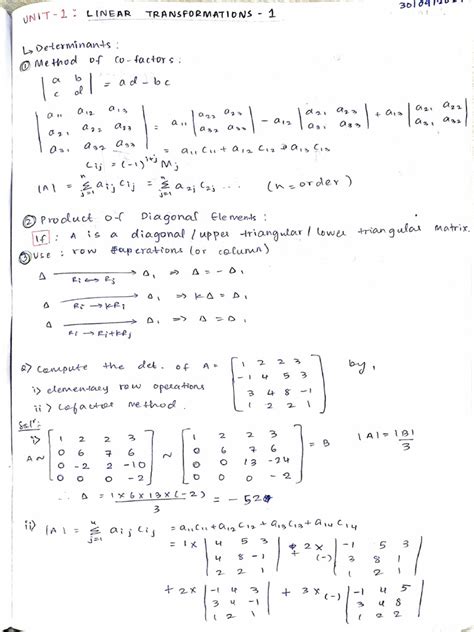 30/04/202
UNIT-1: LINEAR TRANSFORMATIONS - 1
↳ Determinants:
① Method of co-factors:
| a b |
| c d | = ad - bc
| a11 a12 a13 |
| a21 a22 a23 | = a11 | a22 a23 | - a12 | a21 a23 | + a13 | a21 a22 |
| a31 a32 a33 |
= a11 C11 + a12 C12 + a13 C13
Cij = (-1)^(i+j) Mj
|A| = Σ(j=1 to n) aij Cij = Σ(j=1 to n) a2j C2j ... (n = order)
② Product of Diagonal Elements:
If : A is a diagonal / upper triangular / lower triangular matrix.
③ USE: row operations (or column)
Δ Ri ↔ Rj → Δ1 ⇒ Δ = -Δ1
Δ Ri → KRi → Δ1 ⇒ KΔ = Δ1
Δ Ri → Ri+KRj → Δ1 ⇒ Δ = Δ1
Q) Compute the det. of A = [ 1 2 2 3 ; -1 4 5 3 ; 3 4 8 -1 ; 1 2 2 1 ] by,
i) elementary row operations
ii) cofactor method.
Solⁿ:
i) A ~ [ 1 2 2 3 ; 0 6 7 6 ; 0 -2 2 -10 ; 0 0 0 -2 ] ~ [ 1 2 2 3 ; 0 6 7 6 ; 0 0 13 -24 ; 0 0 0 -2 ] = B |A| = |B|/3
∴ Δ = 1×6×13×(-2) / 3 = -52
ii) |A| = Σ(j=1 to 4) aij Cij = a11C11 + a12C12 + a13C13 + a14C14
= 1× | 4 5 3 ; 4 8 -1 ; 2 2 1 | + 2×(-) | -1 5 3 ; 3 8 1 ; 1 2 1 |
+ 2× | -1 4 3 ; 3 4 -1 ; 1 2 1 | + 3×(-) | -1 4 5 ; 3 4 8 ; 1 2 2 |